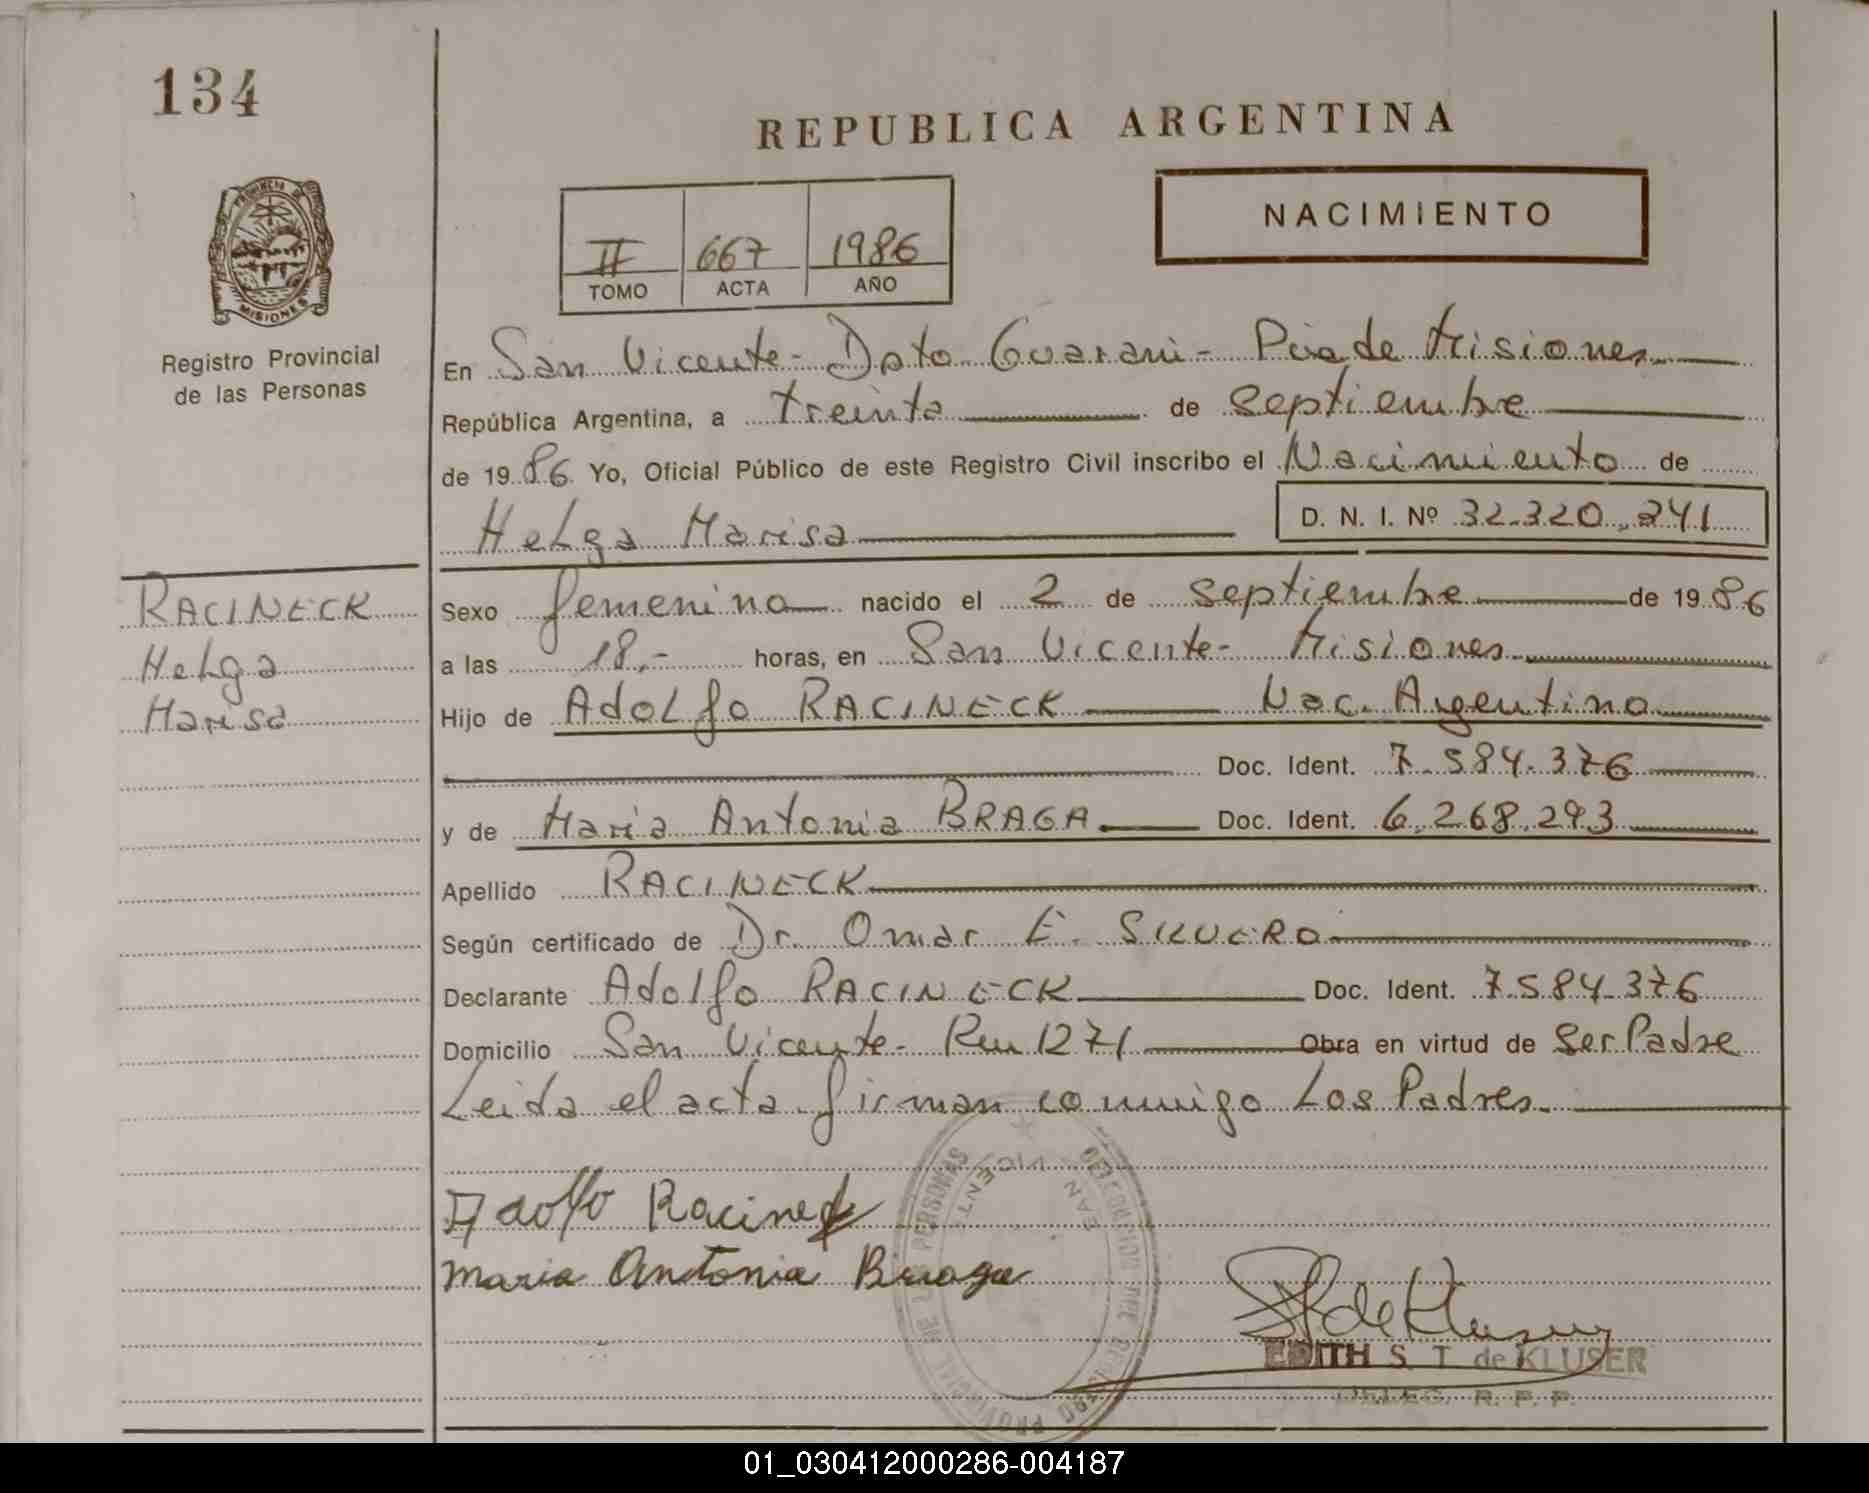 134
REPUBLICA ARGENTINA
NACIMIENTO
II 667 1986
TOMO ACTA AÑO
PROVINCIA DE MISIONES
Registro Provincial
de las Personas
En San Vicente - Dpto Guarani - Pcia de Misiones
República Argentina, a treinta de septiembre
de 1986 Yo, Oficial Público de este Registro Civil inscribo el Nacimiento de
Helga Marisa D. N. I. Nº 32.320.241
RACINECK
Helga
Marisa
Sexo femenino nacido el 2 de septiembre de 1986
a las 18.- horas, en San Vicente - Misiones
Hijo de Adolfo RACINECK Nac. Argentino
Doc. Ident. 7.584.376
y de Maria Antonia BRAGA Doc. Ident. 6.268.293
Apellido RACINECK
Según certificado de Dr. Omar E. SILVERO
Declarante Adolfo RACINECK Doc. Ident. 7.584.376
Domicilio San Vicente - Km 1271 Obra en virtud de Ser Padre
Leida el acta firman conmigo Los Padres.
Adolfo Racineck
Maria Antonia Braga
DELEGACION DEL REGISTRO PROVINCIAL DE LAS PERSONAS
SAN VICENTE
EDITH S. T. de KLUSER
DELEG. R. P. P.
01_030412000286-004187